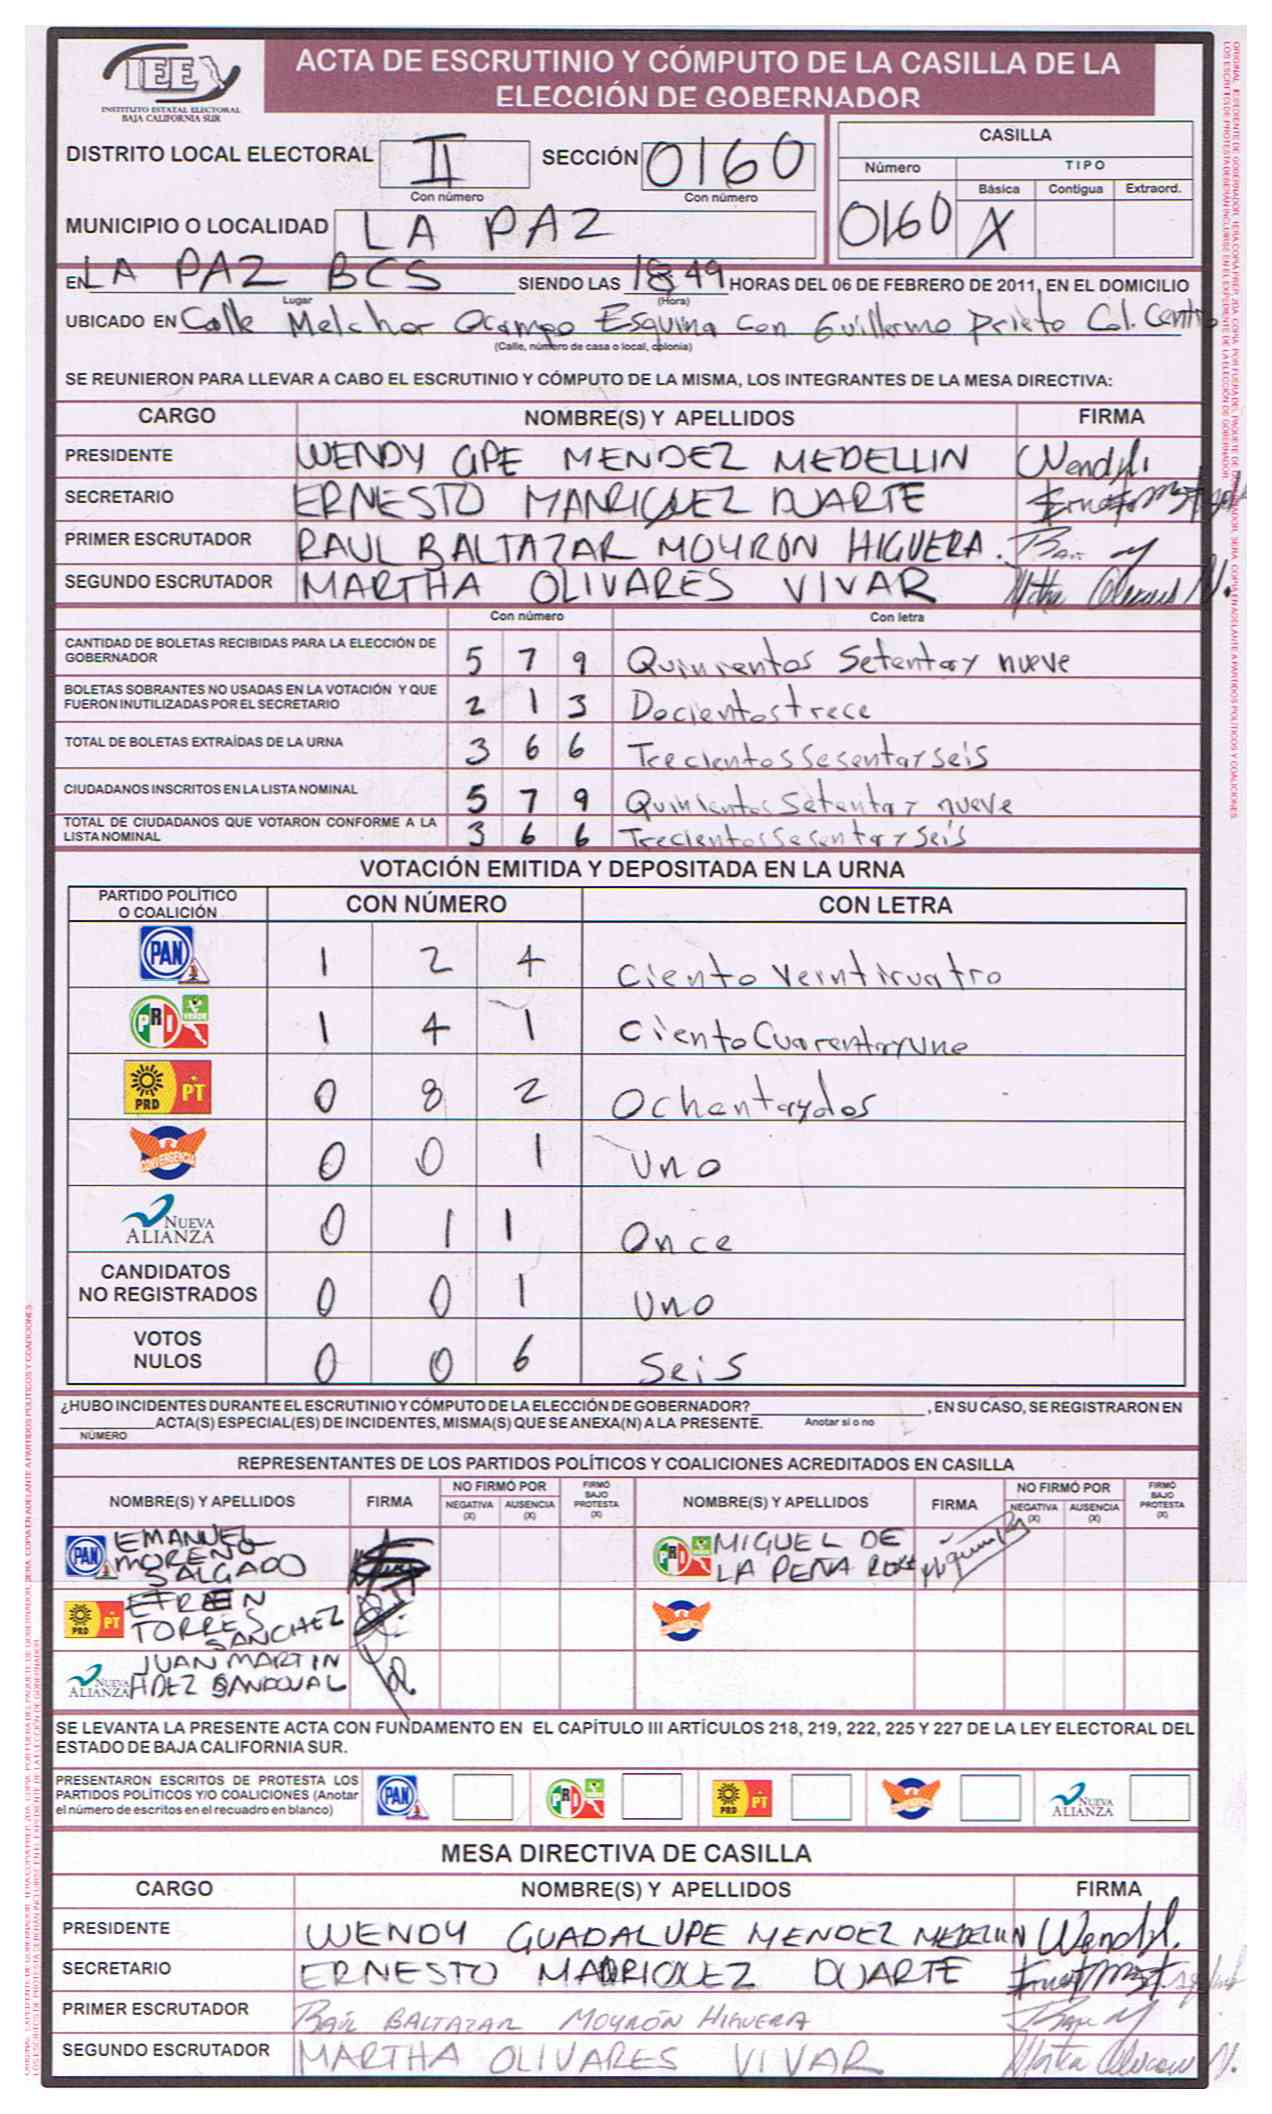 IEE
INSTITUTO ESTATAL ELECTORAL
BAJA CALIFORNIA SUR
ACTA DE ESCRUTINIO Y CÓMPUTO DE LA CASILLA DE LA
ELECCIÓN DE GOBERNADOR
DISTRITO LOCAL ELECTORAL II SECCIÓN 0160
Con número Con número
MUNICIPIO O LOCALIDAD LA PAZ
CASILLA
Número TIPO
Básica Contigua Extraord.
0160 X
EN LA PAZ BCS SIENDO LAS 18:49 HORAS DEL 06 DE FEBRERO DE 2011, EN EL DOMICILIO
Lugar (Hora)
UBICADO EN Calle Melchor Ocampo Esquina con Guillermo Prieto Col. Centro
(Calle, número de casa o local, colonia)
SE REUNIERON PARA LLEVAR A CABO EL ESCRUTINIO Y CÓMPUTO DE LA MISMA, LOS INTEGRANTES DE LA MESA DIRECTIVA:
CARGO NOMBRE(S) Y APELLIDOS FIRMA
PRESIDENTE WENDY GPE MENDEZ MEDELLIN
SECRETARIO ERNESTO MANRIQUEZ DUARTE
PRIMER ESCRUTADOR RAUL BALTAZAR MOYRON HIGUERA.
SEGUNDO ESCRUTADOR MARTHA OLIVARES VIVAR
Con número Con letra
CANTIDAD DE BOLETAS RECIBIDAS PARA LA ELECCIÓN DE
GOBERNADOR 5 7 9 Quinientos Setenta y nueve
BOLETAS SOBRANTES NO USADAS EN LA VOTACIÓN Y QUE
FUERON INUTILIZADAS POR EL SECRETARIO 2 1 3 Docientos trece
TOTAL DE BOLETAS EXTRAÍDAS DE LA URNA 3 6 6 Trecientos Sesenta y seis
CIUDADANOS INSCRITOS EN LA LISTA NOMINAL 5 7 9 Quinientos Setenta y nueve
TOTAL DE CIUDADANOS QUE VOTARON CONFORME A LA
LISTA NOMINAL 3 6 6 Trecientos Sesenta y Seis
VOTACIÓN EMITIDA Y DEPOSITADA EN LA URNA
PARTIDO POLÍTICO
O COALICIÓN CON NÚMERO CON LETRA
PAN 1 2 4 Ciento Veinticuatro
PRI VERDE 1 4 1 Ciento Cuarenta y uno
PRD PT 0 8 2 Ochenta y dos
CONVERGENCIA 0 0 1 Uno
NUEVA ALIANZA 0 1 1 Once
CANDIDATOS
NO REGISTRADOS 0 0 1 Uno
VOTOS
NULOS 0 0 6 Seis
¿HUBO INCIDENTES DURANTE EL ESCRUTINIO Y CÓMPUTO DE LA ELECCIÓN DE GOBERNADOR? , EN SU CASO, SE REGISTRARON EN
ACTA(S) ESPECIAL(ES) DE INCIDENTES, MISMA(S) QUE SE ANEXA(N) A LA PRESENTE. Anotar si o no
NÚMERO
REPRESENTANTES DE LOS PARTIDOS POLÍTICOS Y COALICIONES ACREDITADOS EN CASILLA
NOMBRE(S) Y APELLIDOS FIRMA NO FIRMÓ POR NEGATIVA (X) AUSENCIA (X) FIRMÓ BAJO PROTESTA (X) NOMBRE(S) Y APELLIDOS FIRMA NO FIRMÓ POR NEGATIVA (X) AUSENCIA (X) FIRMÓ BAJO PROTESTA (X)
PAN EMANUEL MORENO SALGADO
PRI MIGUEL DE LA PEÑA
PRD PT EFREN TORRES SANCHEZ
NUEVA ALIANZA JUAN MARTIN HDEZ SANDOVAL
SE LEVANTA LA PRESENTE ACTA CON FUNDAMENTO EN EL CAPÍTULO III ARTÍCULOS 218, 219, 222, 225 Y 227 DE LA LEY ELECTORAL DEL
ESTADO DE BAJA CALIFORNIA SUR.
PRESENTARON ESCRITOS DE PROTESTA LOS
PARTIDOS POLÍTICOS Y/O COALICIONES (Anotar
el número de escritos en el recuadro en blanco)
PAN PRI PRD PT NUEVA ALIANZA
MESA DIRECTIVA DE CASILLA
CARGO NOMBRE(S) Y APELLIDOS FIRMA
PRESIDENTE WENDY GUADALUPE MENDEZ MEDELLIN
SECRETARIO ERNESTO MANRIQUEZ DUARTE
PRIMER ESCRUTADOR RAÚL BALTAZAR MOYRÓN HIGUERA
SEGUNDO ESCRUTADOR MARTHA OLIVARES VIVAR